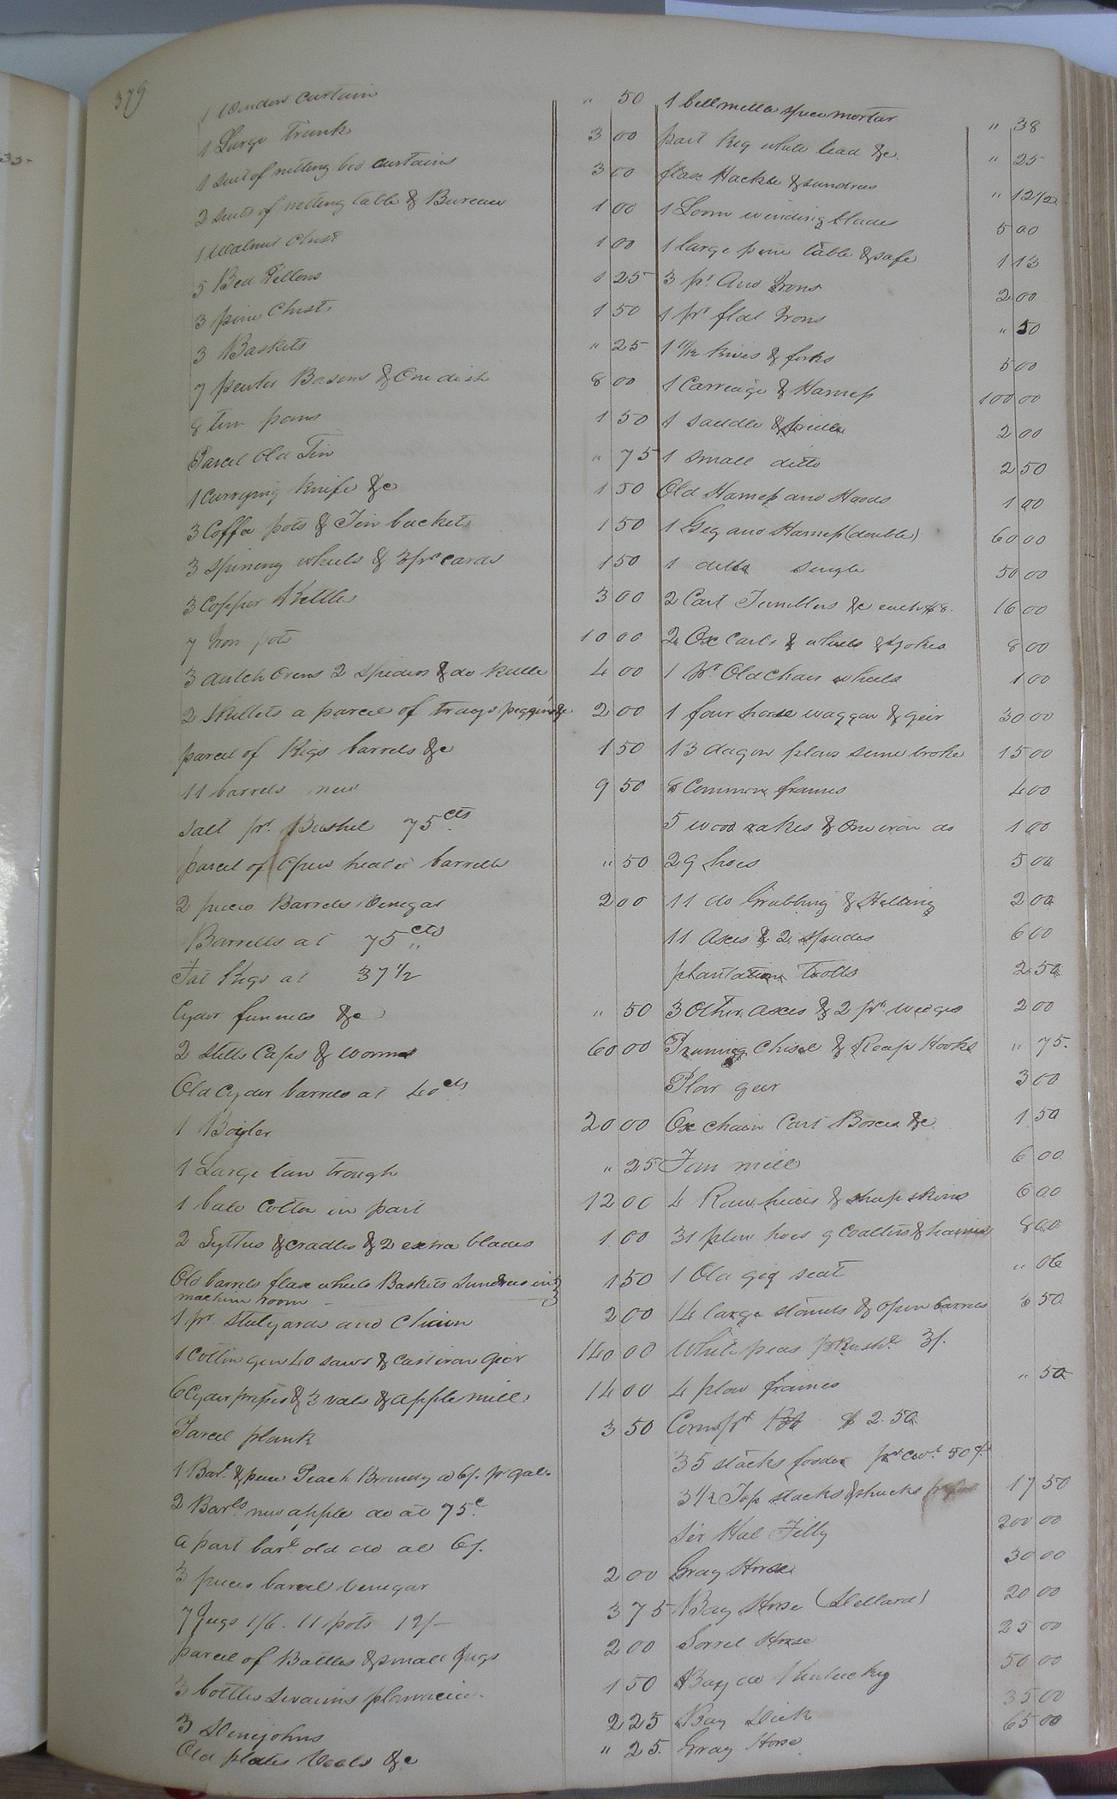 379
1 Window curtain " 50
1 Large Trunk 3 00
1 suit of netting bed curtains 3 00
2 suits of netting table & Bureau 1 00
1 Walnut Chest 1 00
5 Bed Pillows 1 25
3 pine Chists 1 50
3 Baskets " 25
7 pewter Basons & One dish 8 00
8 tin pans 1 50
Parcel Old Tin " 75
1 Currying knife &c 1 50
3 Coffe pots & Tin buckets 1 50
3 Spining wheels & 3 pr cards 1 50
3 Copper Kettles 3 00
7 Iron pots 10 00
3 dutch Ovens 2 Spiders & do 4 00
2 Skillets a parcel of trays &c 2 00
parcel of Kigs barrels &c 1 50
11 barrels new 9 50
Salt pr. Bushel 75 cts
parcel of Open headed barrells " 50
2 pieces Barrels Vinegar 2 00
Barrells at 75 cts
Fat Kegs at 37 1/2
Cyder funnels &c " 50
2 Stills Caps & worms 60 00
Old Cyder barrels at 40 cts
1 Boyler 20 00
1 Large tan trough " 25
1 bale Cotton in part 12 00
2 Sythes & cradles & 2 extra blades 1 00
Old barrels flax wheels Baskets Sundries in 1 50
machine room
1 pr Stilyards and Chain 2 00
1 Cotton gin 40 saws & cast iron geer 140 00
6 Cyder presses & 3 vats & apple mill 14 00
Parcel plank 3 50
1 Barl. & piece Peach Brandy @ 6/. pr gal.
2 Barls new apple do at 75 c
a part barl old do at 6/.
3 pieces barrel Vinegar 2 00
7 Jugs 1/6. 11 pots 12/- 3 75
parcel of Bottles & small Jugs 2 00
3 bottles Swaims 1 50
3 Demijohns 2 25
Old plates &c " 25
1 bellmettle spice mortar " 38
part Keg white lead &c. " 25
flax Hackle & sundries " 12 1/2
1 Loom winding blades 5 00
1 large pine table & safe 1 13
3 pr. And Irons 2 00
1 pr flat Irons " 50
1 knives & forks 5 00
1 Carreage & Harness 100 00
1 saddle & 2 00
1 small ditto 2 50
Old Harness and Hoods 1 00
1 Gig and Harness (double) 60 00
1 ditto single 50 00
2 Cart Tumblers &c each $8. 16 00
2 Ox Carts & wheels & yokes 8 00
1 pr Old Chair wheels 1 00
1 four horse waggon & geir 30 00
13 dagon plows some broke 15 00
8 Common frames 4 00
5 wood rakes & One iron do 1 00
29 hoes 5 00
11 do Grubbing & Hilling 2 00
11 Axes & 2 Spades 6 00
plantation Tools 2 50
3 Other axes & 2 pr wedges 2 00
Pruning Chisel & Reap Hooks " 75
Plow geir 3 00
Ox chain Cart Boxes &c 1 50
Fan mill 6 00
4 Raw hides & sheep skins 6 00
31 plow hoes 9 Coulters & 8 00
1 Old gig seat " 06
14 large stands & open barrels 3 50
White peas pr Bushl 3/.
4 plow frames " 50
Corn pr $ 2.50
35 stacks fodder pr cwt. 50 ct
3 1/2 Top stacks & shucks 17 50
Sir Hal Filly 200 00
Gray Horse 30 00
Bay Horse (Dillard) 20 00
Sorrel Horse 25 00
Bay do Kentucky 50 00
Bay Dick 35 00
Gray Horse 65 00